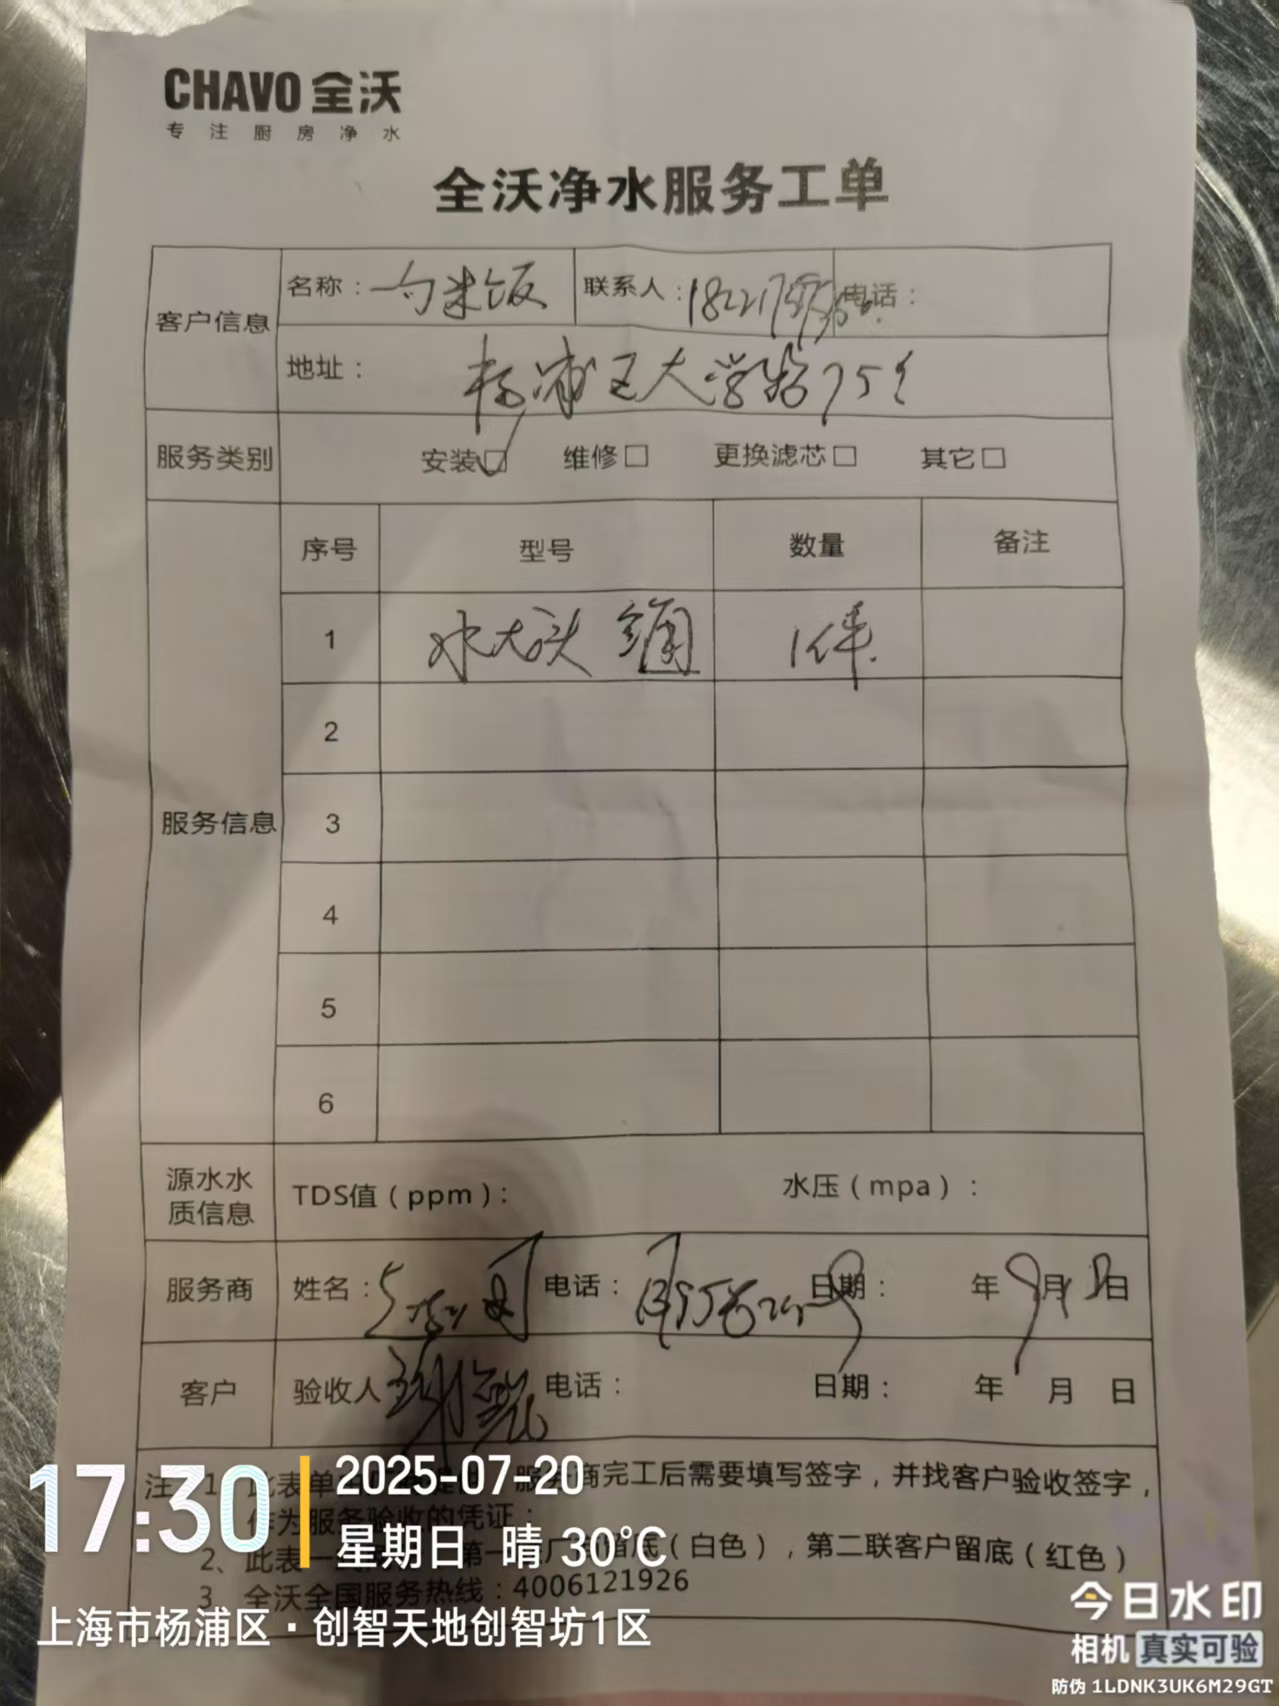 CHAVO 全沃
专注厨房净水
全沃净水服务工单
客户信息
名称：一勺米饭 联系人： 电话：
地址：杨浦区大学路
服务类别 安装☑ 维修□ 更换滤芯□ 其它□
服务信息
序号 型号 数量 备注
1 水龙头 1件
2
3
4
5
6
源水水质信息 TDS值（ppm）： 水压（mpa）：
服务商 姓名： 电话： 日期： 年 月 日
客户 验收人 电话： 日期： 年 月 日
注 1 此表单 服务商完工后需要填写签字，并找客户验收签字，
作为服务验收的凭证；
2、此表一 第一 厂商留底（白色），第二联客户留底（红色）
3、全沃全国服务热线：4006121926
17:30
2025-07-20
星期日 晴 30℃
上海市杨浦区·创智天地创智坊1区
今日水印
相机 真实可验
防伪 1LDNK3UK6M29GT